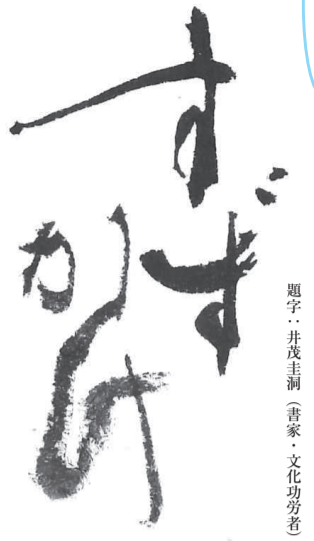 すず
かけ
題字：井茂圭洞（書家・文化功労者）